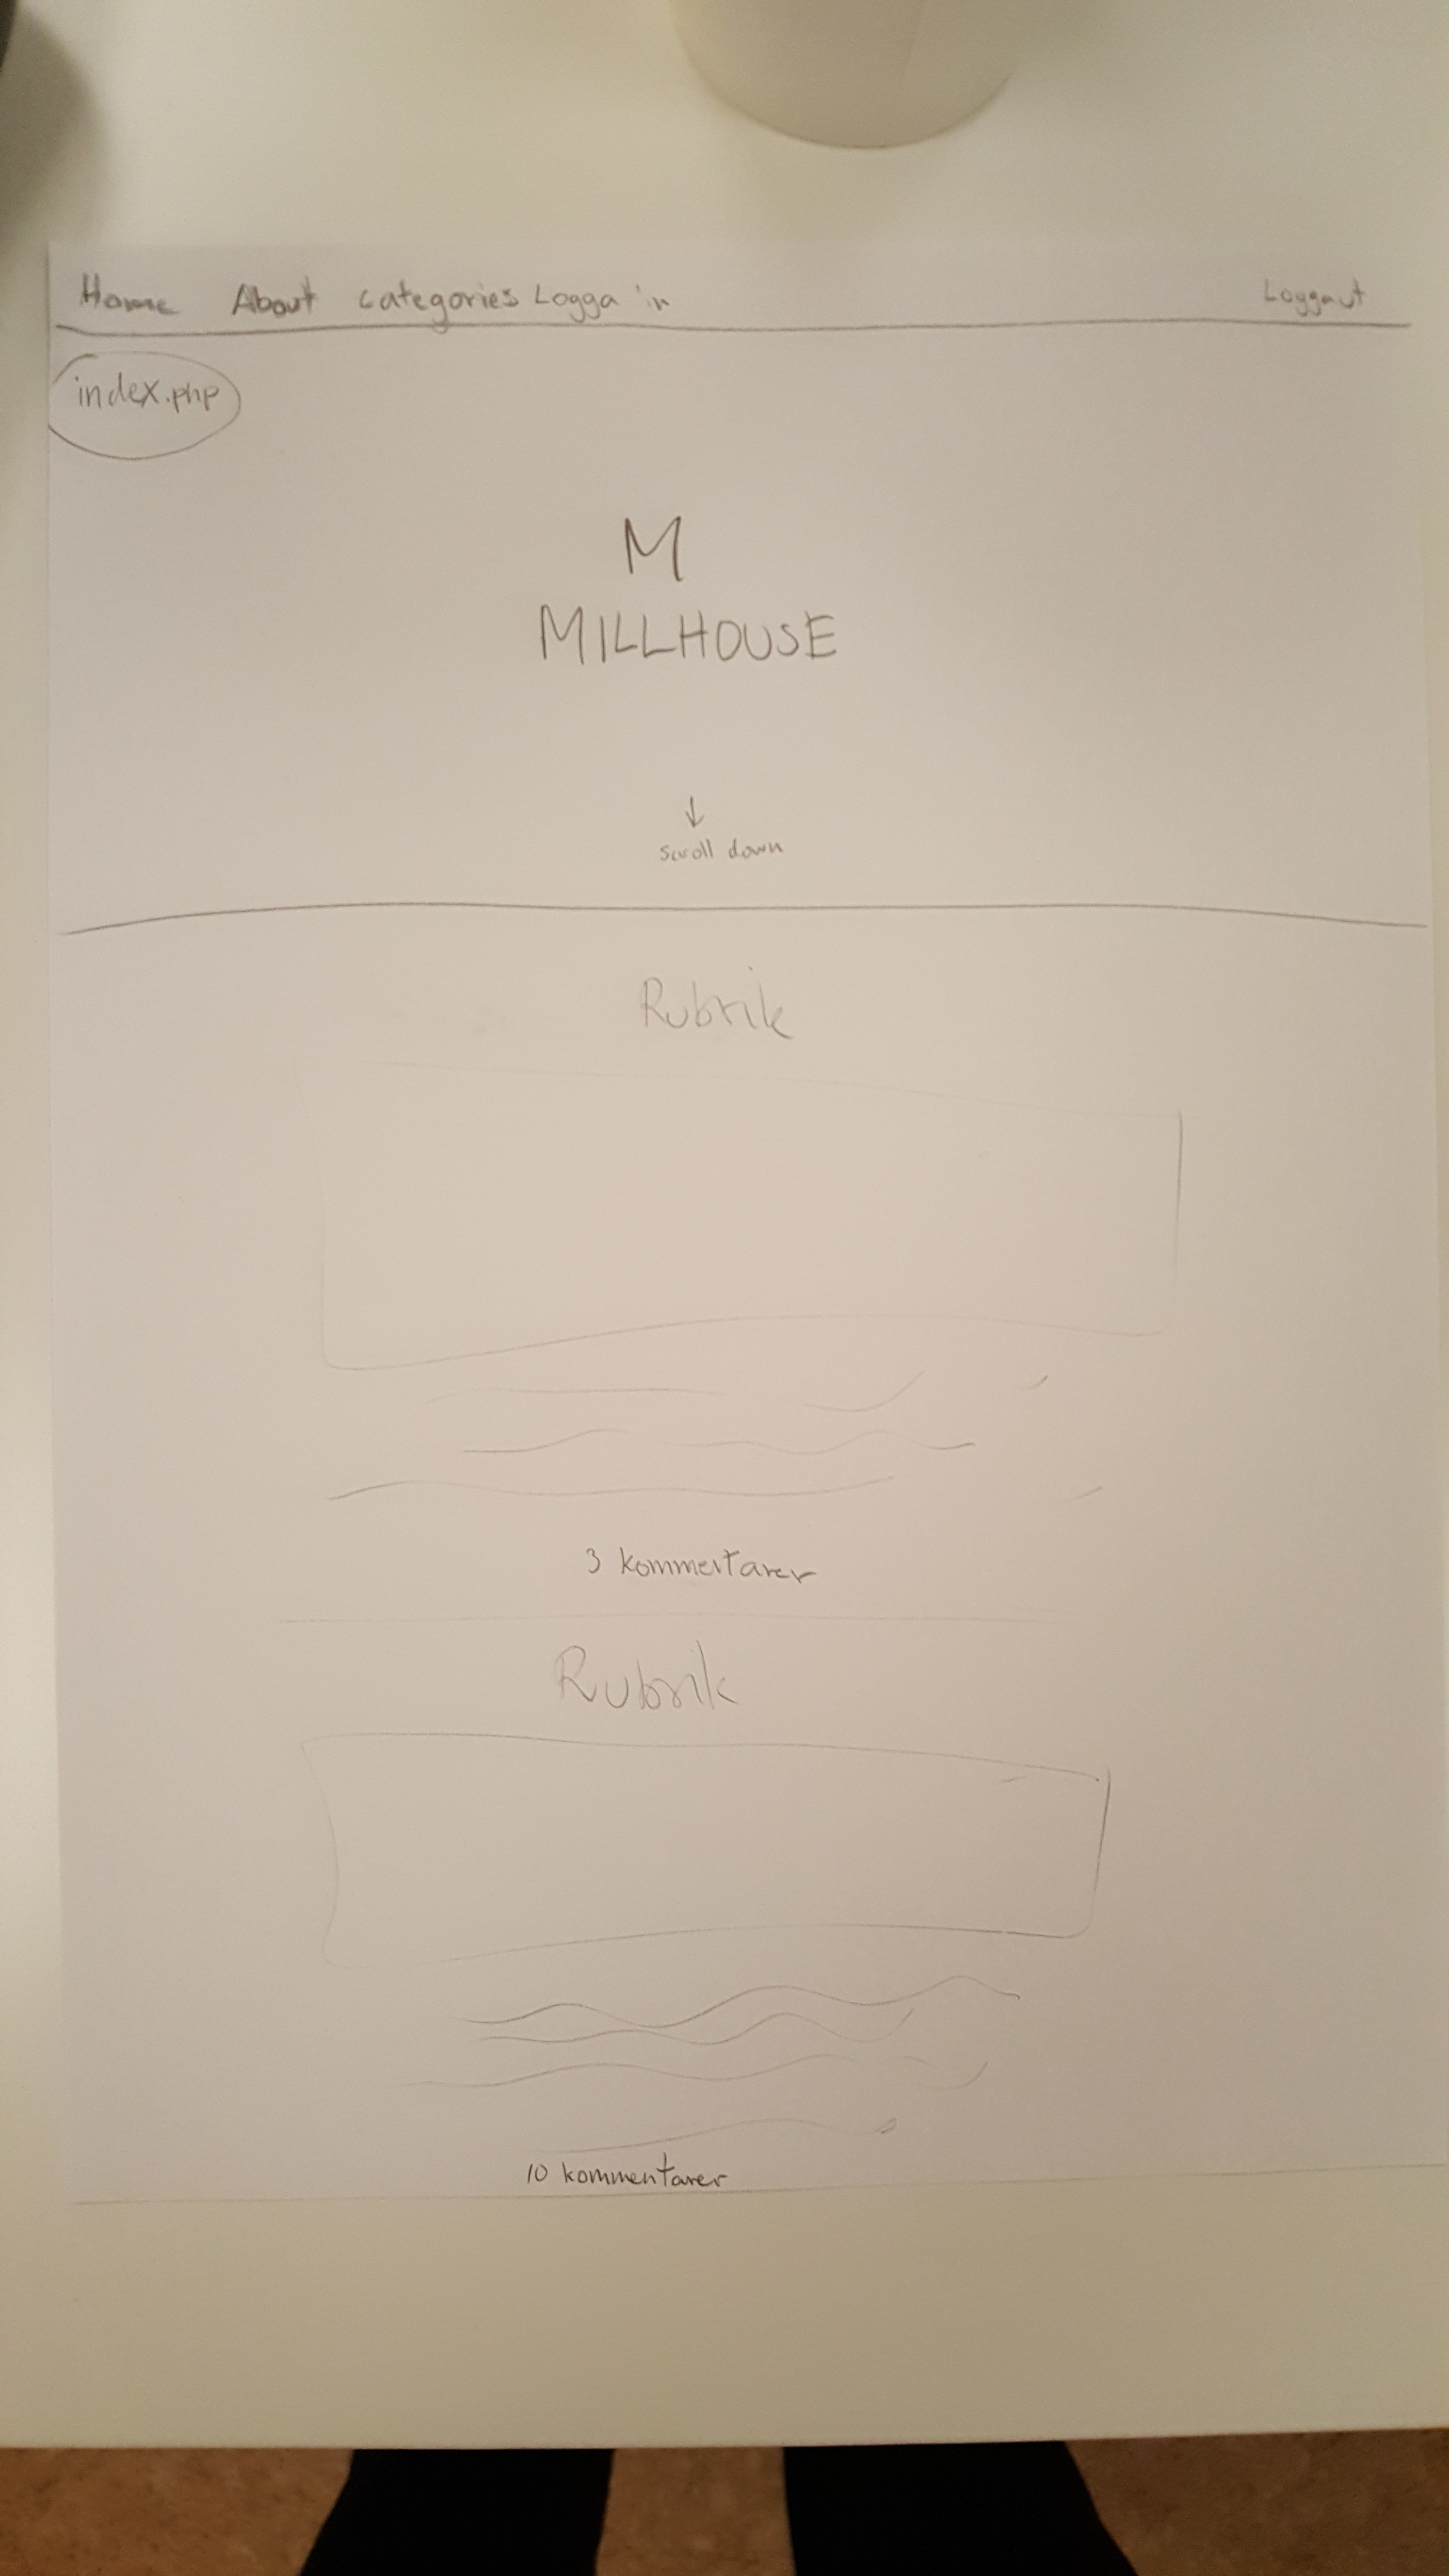 Home About categories Logga in Logga ut
index.php
M
MILLHOUSE
↓
scroll down
Rubrik
3 kommentarer
Rubrik
10 kommentarer